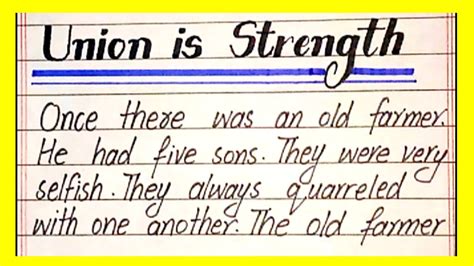 Union is Strength
Once there was an old farmer.
He had five sons. They were very
selfish. They always quarreled
with one another. The old farmer